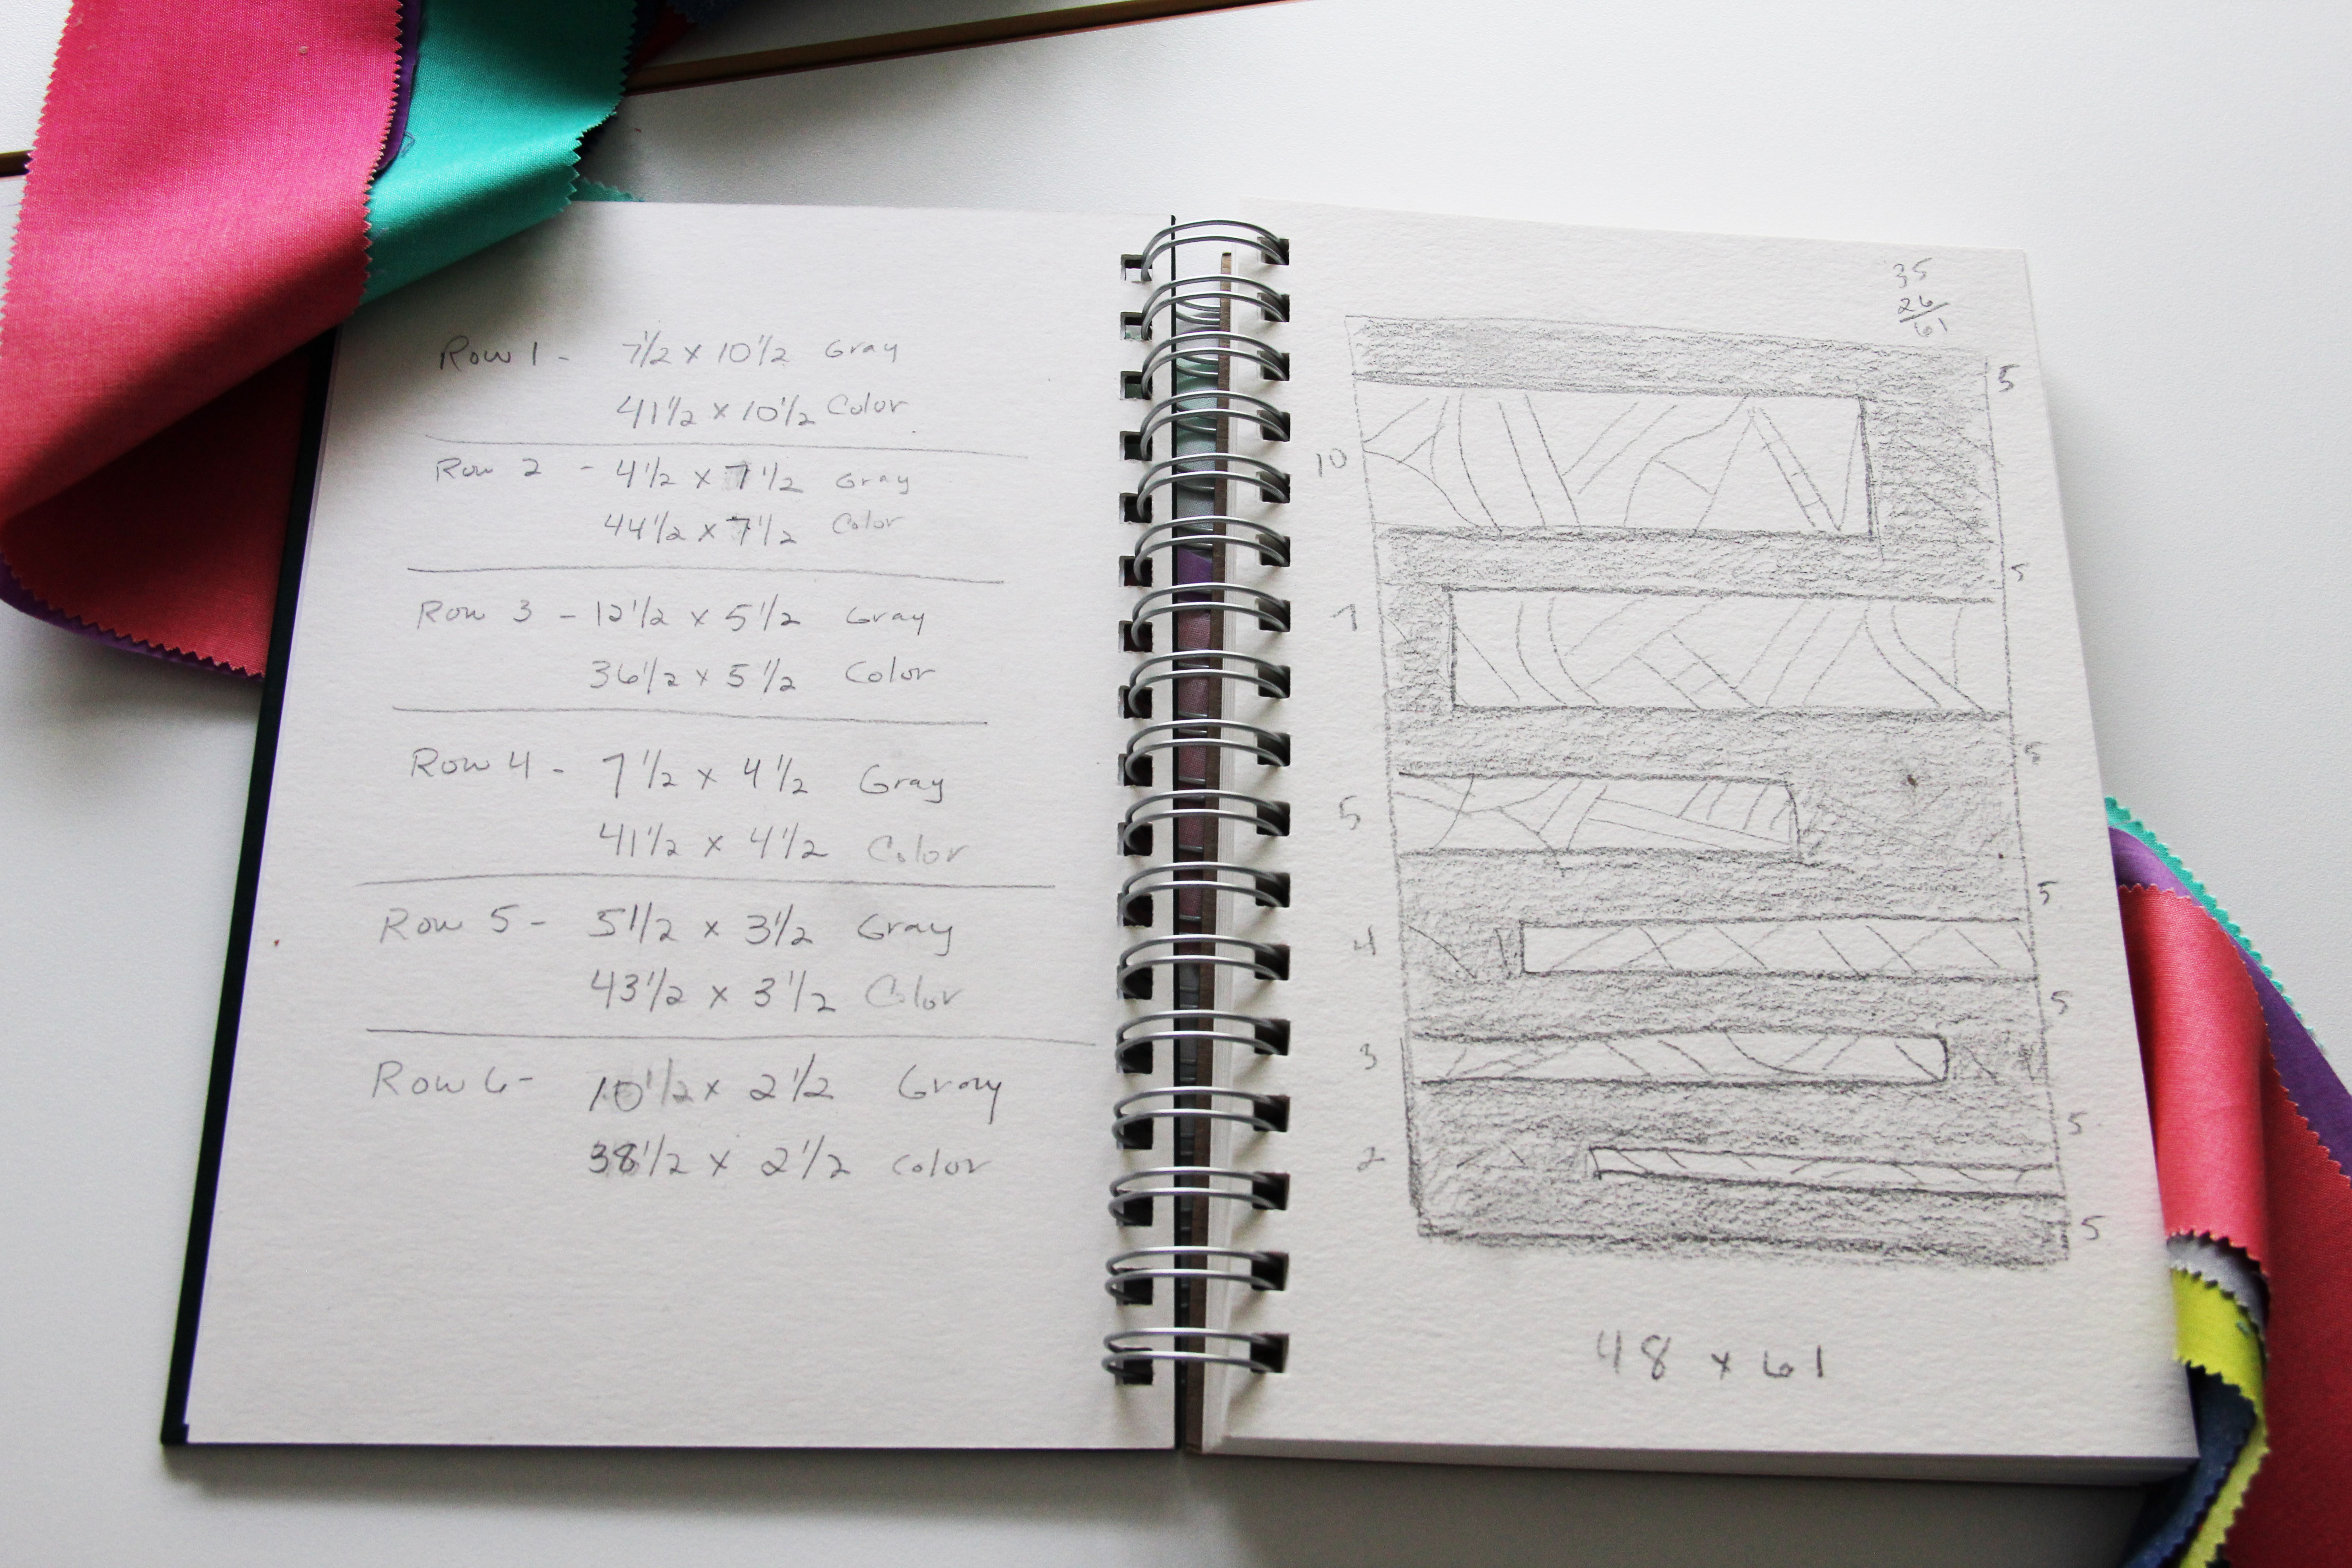 Row 1 - 7 1/2 x 10 1/2 Gray
41 1/2 x 10 1/2 Color
Row 2 - 4 1/2 x 7 1/2 Gray
44 1/2 x 7 1/2 Color
Row 3 - 12 1/2 x 5 1/2 Gray
36 1/2 x 5 1/2 Color
Row 4 - 7 1/2 x 4 1/2 Gray
41 1/2 x 4 1/2 Color
Row 5 - 5 1/2 x 3 1/2 Gray
43 1/2 x 3 1/2 Color
Row 6 - 10 1/2 x 2 1/2 Gray
38 1/2 x 2 1/2 Color
35
26
61
5
10
5
7
5
5
5
4
5
3
5
2
5
48 x 61